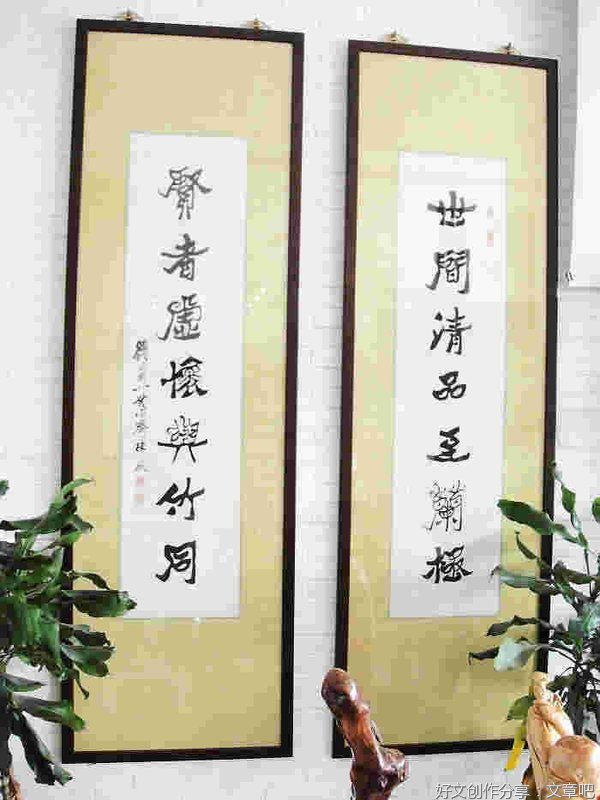 世間清品至蘭極
賢者虛懷與竹同
好文创作分享，文章吧